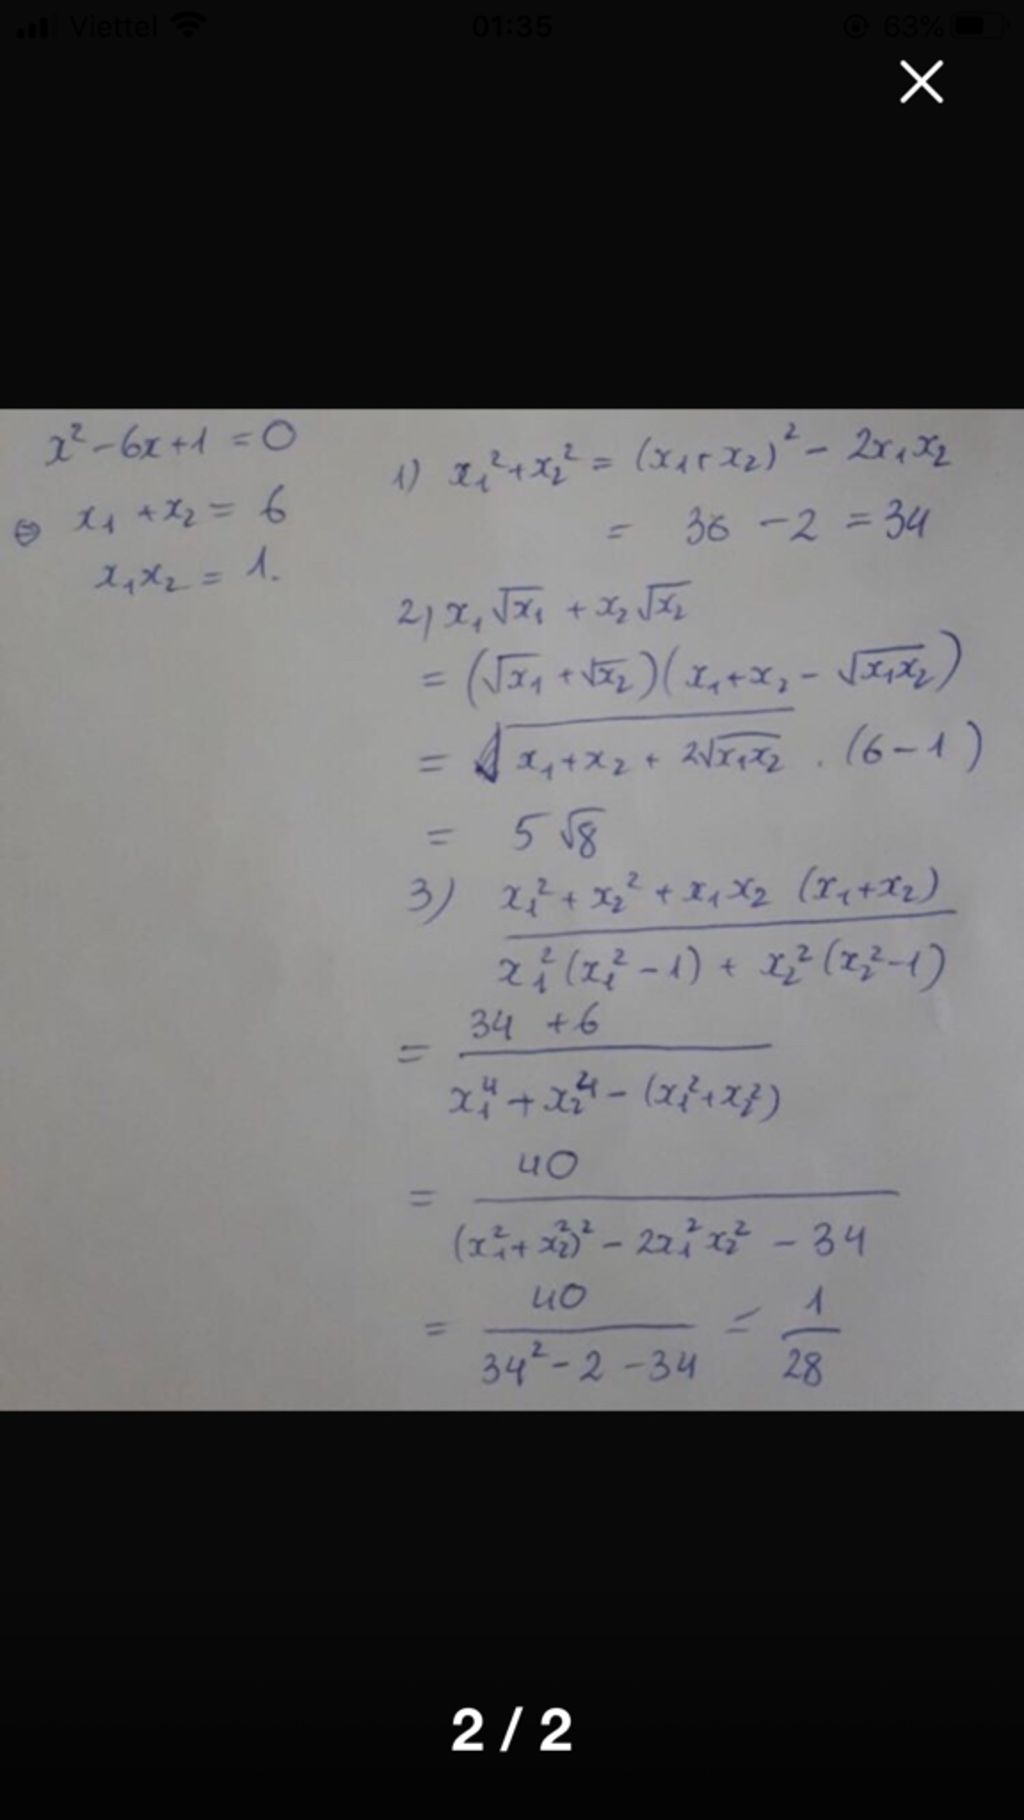 Viettel 01:35 63%
x² - 6x + 1 = 0
⇔ x₁ + x₂ = 6
x₁x₂ = 1.
1) x₁² + x₂² = (x₁ + x₂)² - 2x₁x₂
= 36 - 2 = 34
2) x₁√x₁ + x₂√x₂
= (√x₁ + √x₂)(x₁ + x₂ - √(x₁x₂))
= √(x₁ + x₂ + 2√(x₁x₂)) . (6 - 1)
= 5√8
3) (x₁² + x₂² + x₁x₂ (x₁ + x₂)) / (x₁²(x₁² - 1) + x₂²(x₂² - 1))
= (34 + 6) / (x₁⁴ + x₂⁴ - (x₁² + x₂²))
= 40 / ((x₁² + x₂²)² - 2x₁²x₂² - 34)
= 40 / (34² - 2 - 34) = 1 / 28
2 / 2